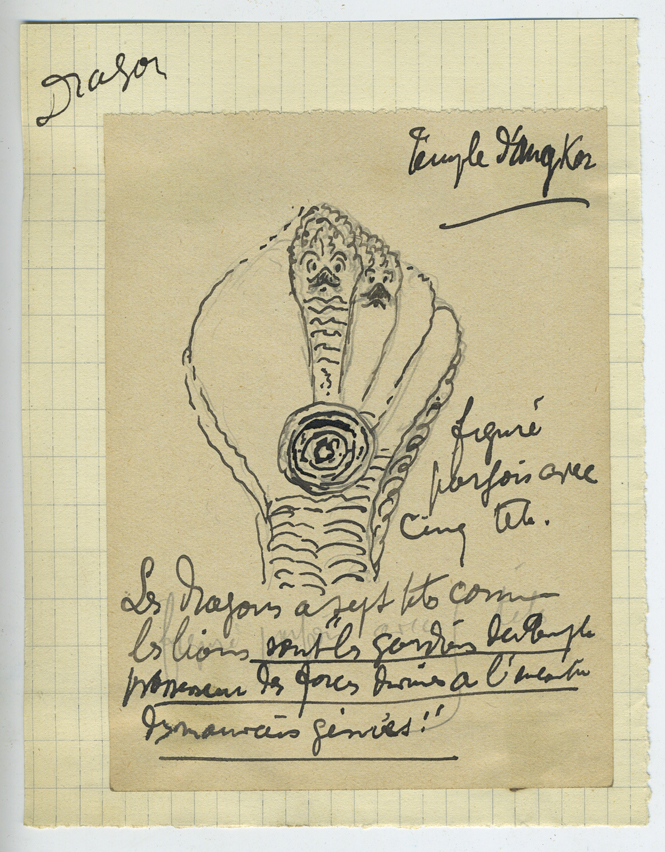 Dragon
Temple d'Angkor
figuré
parfois avec
cinq têtes.
Les dragons a sept têtes comme
les lions sont les gardiens des Temple
des forces divines a l'encontre
des mauvais génies!!